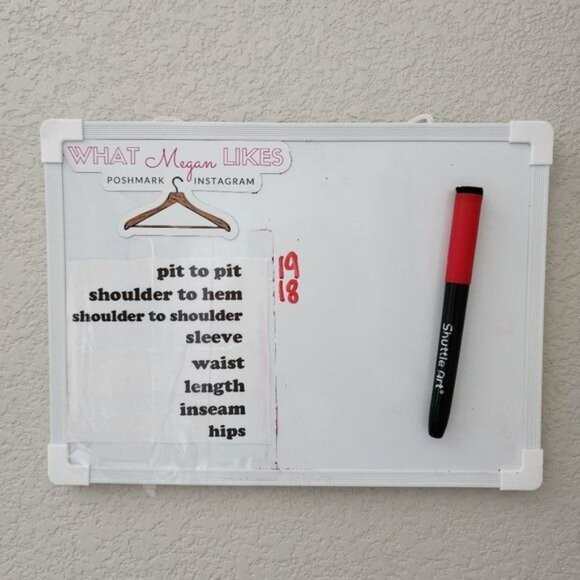 WHAT Megan LIKES
POSHMARK INSTAGRAM
pit to pit 19
shoulder to hem 18
shoulder to shoulder
sleeve
waist
length
inseam
hips
Shuttle Art